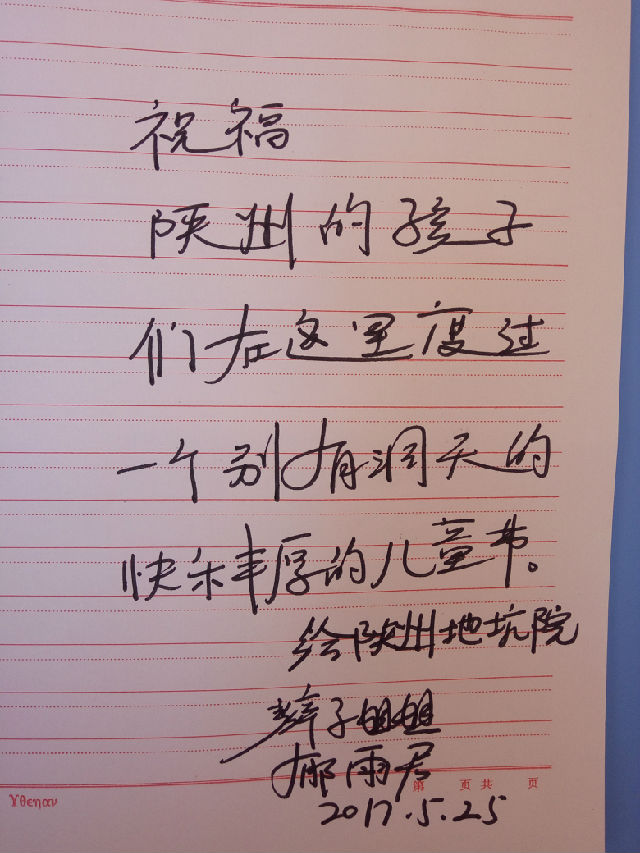 祝福
陕州的孩子
们在这里度过
一个别有洞天的
快乐丰厚的儿童节。
给陕州地坑院
辫子姐姐
郁雨君
2017.5.25
第 页 共 页